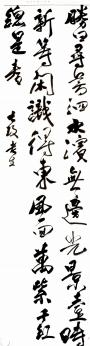 勝日尋芳泗水濱無邊光景壹時
新等閑識得東風面萬紫千紅
總是春